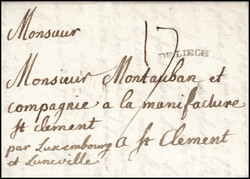 Monsieur
17
DE LIEGE
Monsieur Montauban et
compagnie a la manifacture
st clement
par Luxembourg a St Clement
et Luneville